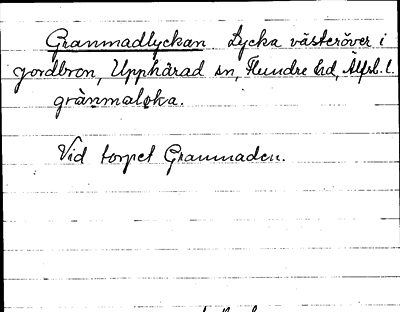 Granmadlyckan Lycka västeröver i
jordbron, Upphärad sn, Flundre hd, Älfsb. l.
grànmaloka.
Vid torpet Granmaden.